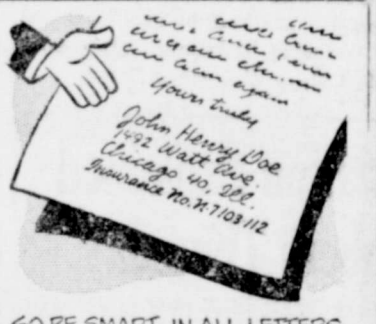 Yours truly
John Henry Doe
1492 Watt Ave.
Chicago 40, Ill.
Insurance No. N-7103112
SO BE SMART, IN ALL LETTERS